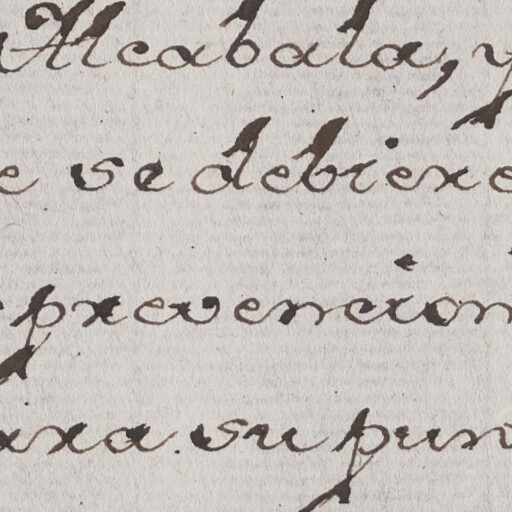 Alcabala, y
e se debiere
prevencion
ara su pun